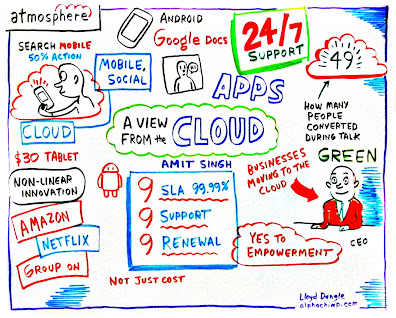 atmosphere
SEARCH MOBILE
50% ACTION
MOBILE,
SOCIAL
ANDROID
Google Docs
24/7
SUPPORT
49
HOW MANY
PEOPLE
CONVERTED
DURING TALK
APPS
A VIEW
FROM the
CLOUD
AMIT SINGH
CLOUD
$30 TABLET
NON-LINEAR
INNOVATION
AMAZON
NETFLIX
GROUP ON
9 SLA 99.99%
9 SUPPORT
9 RENEWAL
NOT JUST COST
BUSINESSES
MOVING TO THE
CLOUD
GREEN
CEO
YES TO
EMPOWERMENT
Lloyd Dangle
alphachimp.com